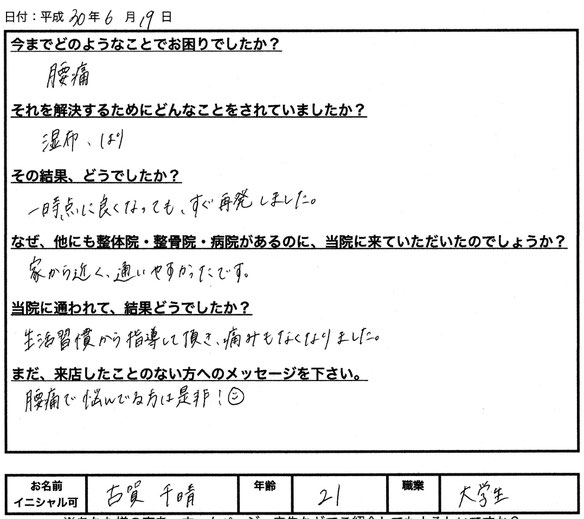 日付：平成 30年 6 月 19 日
今までどのようなことでお困りでしたか？
腰痛
それを解決するためにどんなことをされていましたか？
湿布、はり
その結果、どうでしたか？
一時点に良くなっても、すぐ再発しました。
なぜ、他にも整体院・整骨院・病院があるのに、当院に来ていただいたのでしょうか？
家から近く、通いやすかったです。
当院に通われて、結果どうでしたか？
生活習慣から指導して頂き、痛みもなくなりました。
まだ、来店したことのない方へのメッセージを下さい。
腰痛で悩んでる方は是非！☺
お名前 イニシャル可 古賀 千晴 年齢 21 職業 大学生